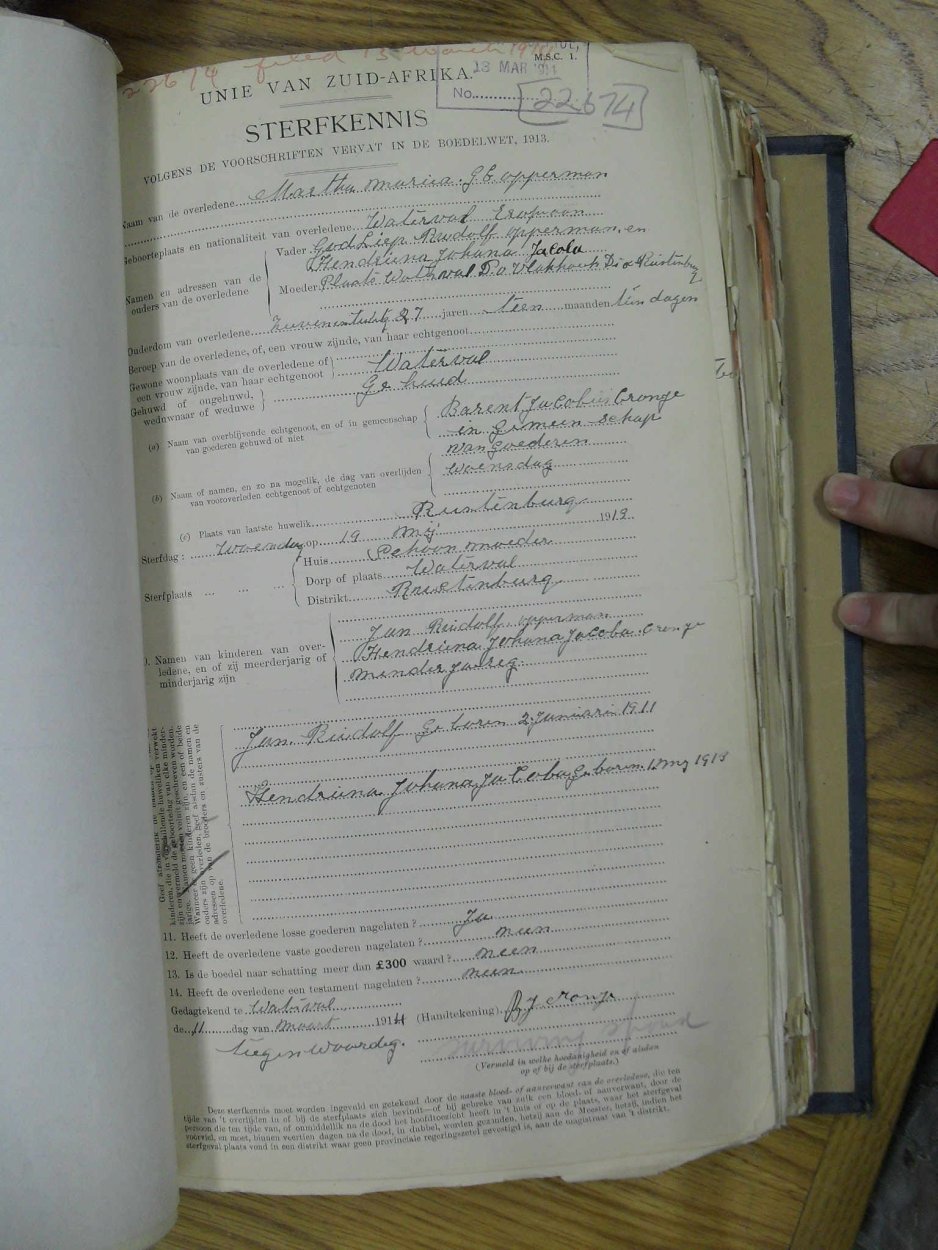 22674 filed 13 March 1914
M.S.C. 1.
13 MAR 1914
No. 22674
UNIE VAN ZUID-AFRIKA.
STERFKENNIS
VOLGENS DE VOORSCHRIFTEN VERVAT IN DE BOEDELWET, 1913.
Naam van de overledene Martha Maria G E opperman
Geboorteplaats en nationaliteit van overledene Waterval
Namen en adressen van de ouders van de overledene
Vader Godliep Rudolf opperman en
Hendriena Johana Jacoba
Moeder Plaats Waterval D.o Vlakhoek Dis Rustenburg
Ouderdom van overledene 27 jaren tien maanden tien dagen
Beroep van de overledene, of, een vrouw zijnde, van haar echtgenoot
Gewone woonplaats van de overledene of een vrouw zijnde, van haar echtgenoot Waterval
Gehuwd of ongehuwd, weduwnaar of weduwe Gehuid
(a) Naam van overblijvende echtgenoot, en of in gemeenschap van goederen gehuwd of niet
Barent Jacobus Cronje
in Gemeinschap
van Goederen
(b) Naam of namen, en zo na mogelik, de dag van overlijden van vooroverleden echtgenoot of echtgenoten
Woensdag
(c) Plaats van laatste huwelik Rustenburg
Sterfdag: Woensdag op 19 Mij 1913
Sterfplaats
Huis Schoon moeder
Dorp of plaats Waterval
Distrikt Rustenburg
0. Namen van kinderen van overledene, en of zij meerderjarig of minderjarig zijn
Jan Rudolf opperman
Hendriena Johana Jacoba Cronje
minderjareg
Jan Rudolf Geboren 2 Januarie 1911
Hendriena Johana Jacoba Geboren 1 mij 1913
11. Heeft de overledene losse goederen nagelaten? Ja
12. Heeft de overledene vaste goederen nagelaten? neen
13. Is de boedel naar schatting meer dan £300 waard? neen
14. Heeft de overledene een testament nagelaten? neen
Gedagtekend te Waterval
de 11 dag van Maart 1914 (Handtekening) BJ Cronje
tiegenwoordig. surviving spouse
(Vermeld in welke hoedanigheid en of aldan op of bij de sterfplaats.)
Deze sterfkennis moet worden ingevuld en getekend door de naaste bloed- of aanverwant van de overledene, die ten
tijde van 't overlijden in of bij de sterfplaats zich bevindt—of bij gebreke van zulk een bloed- of aanverwant, door de
persoon die ten tijde van, of onmiddellik na de dood het hoofdtoezicht heeft in 't huis of op de plaats, waar het sterfgeval
voorviel, en moet, binnen veertien dagen na de dood, in dubbel, worden gezonden, hetzij aan de Meester, hetzij, indien het
sterfgeval plaats vond in een distrikt waar geen provinciale regeringszetel gevestigd is, aan de magistraat van 't distrikt.